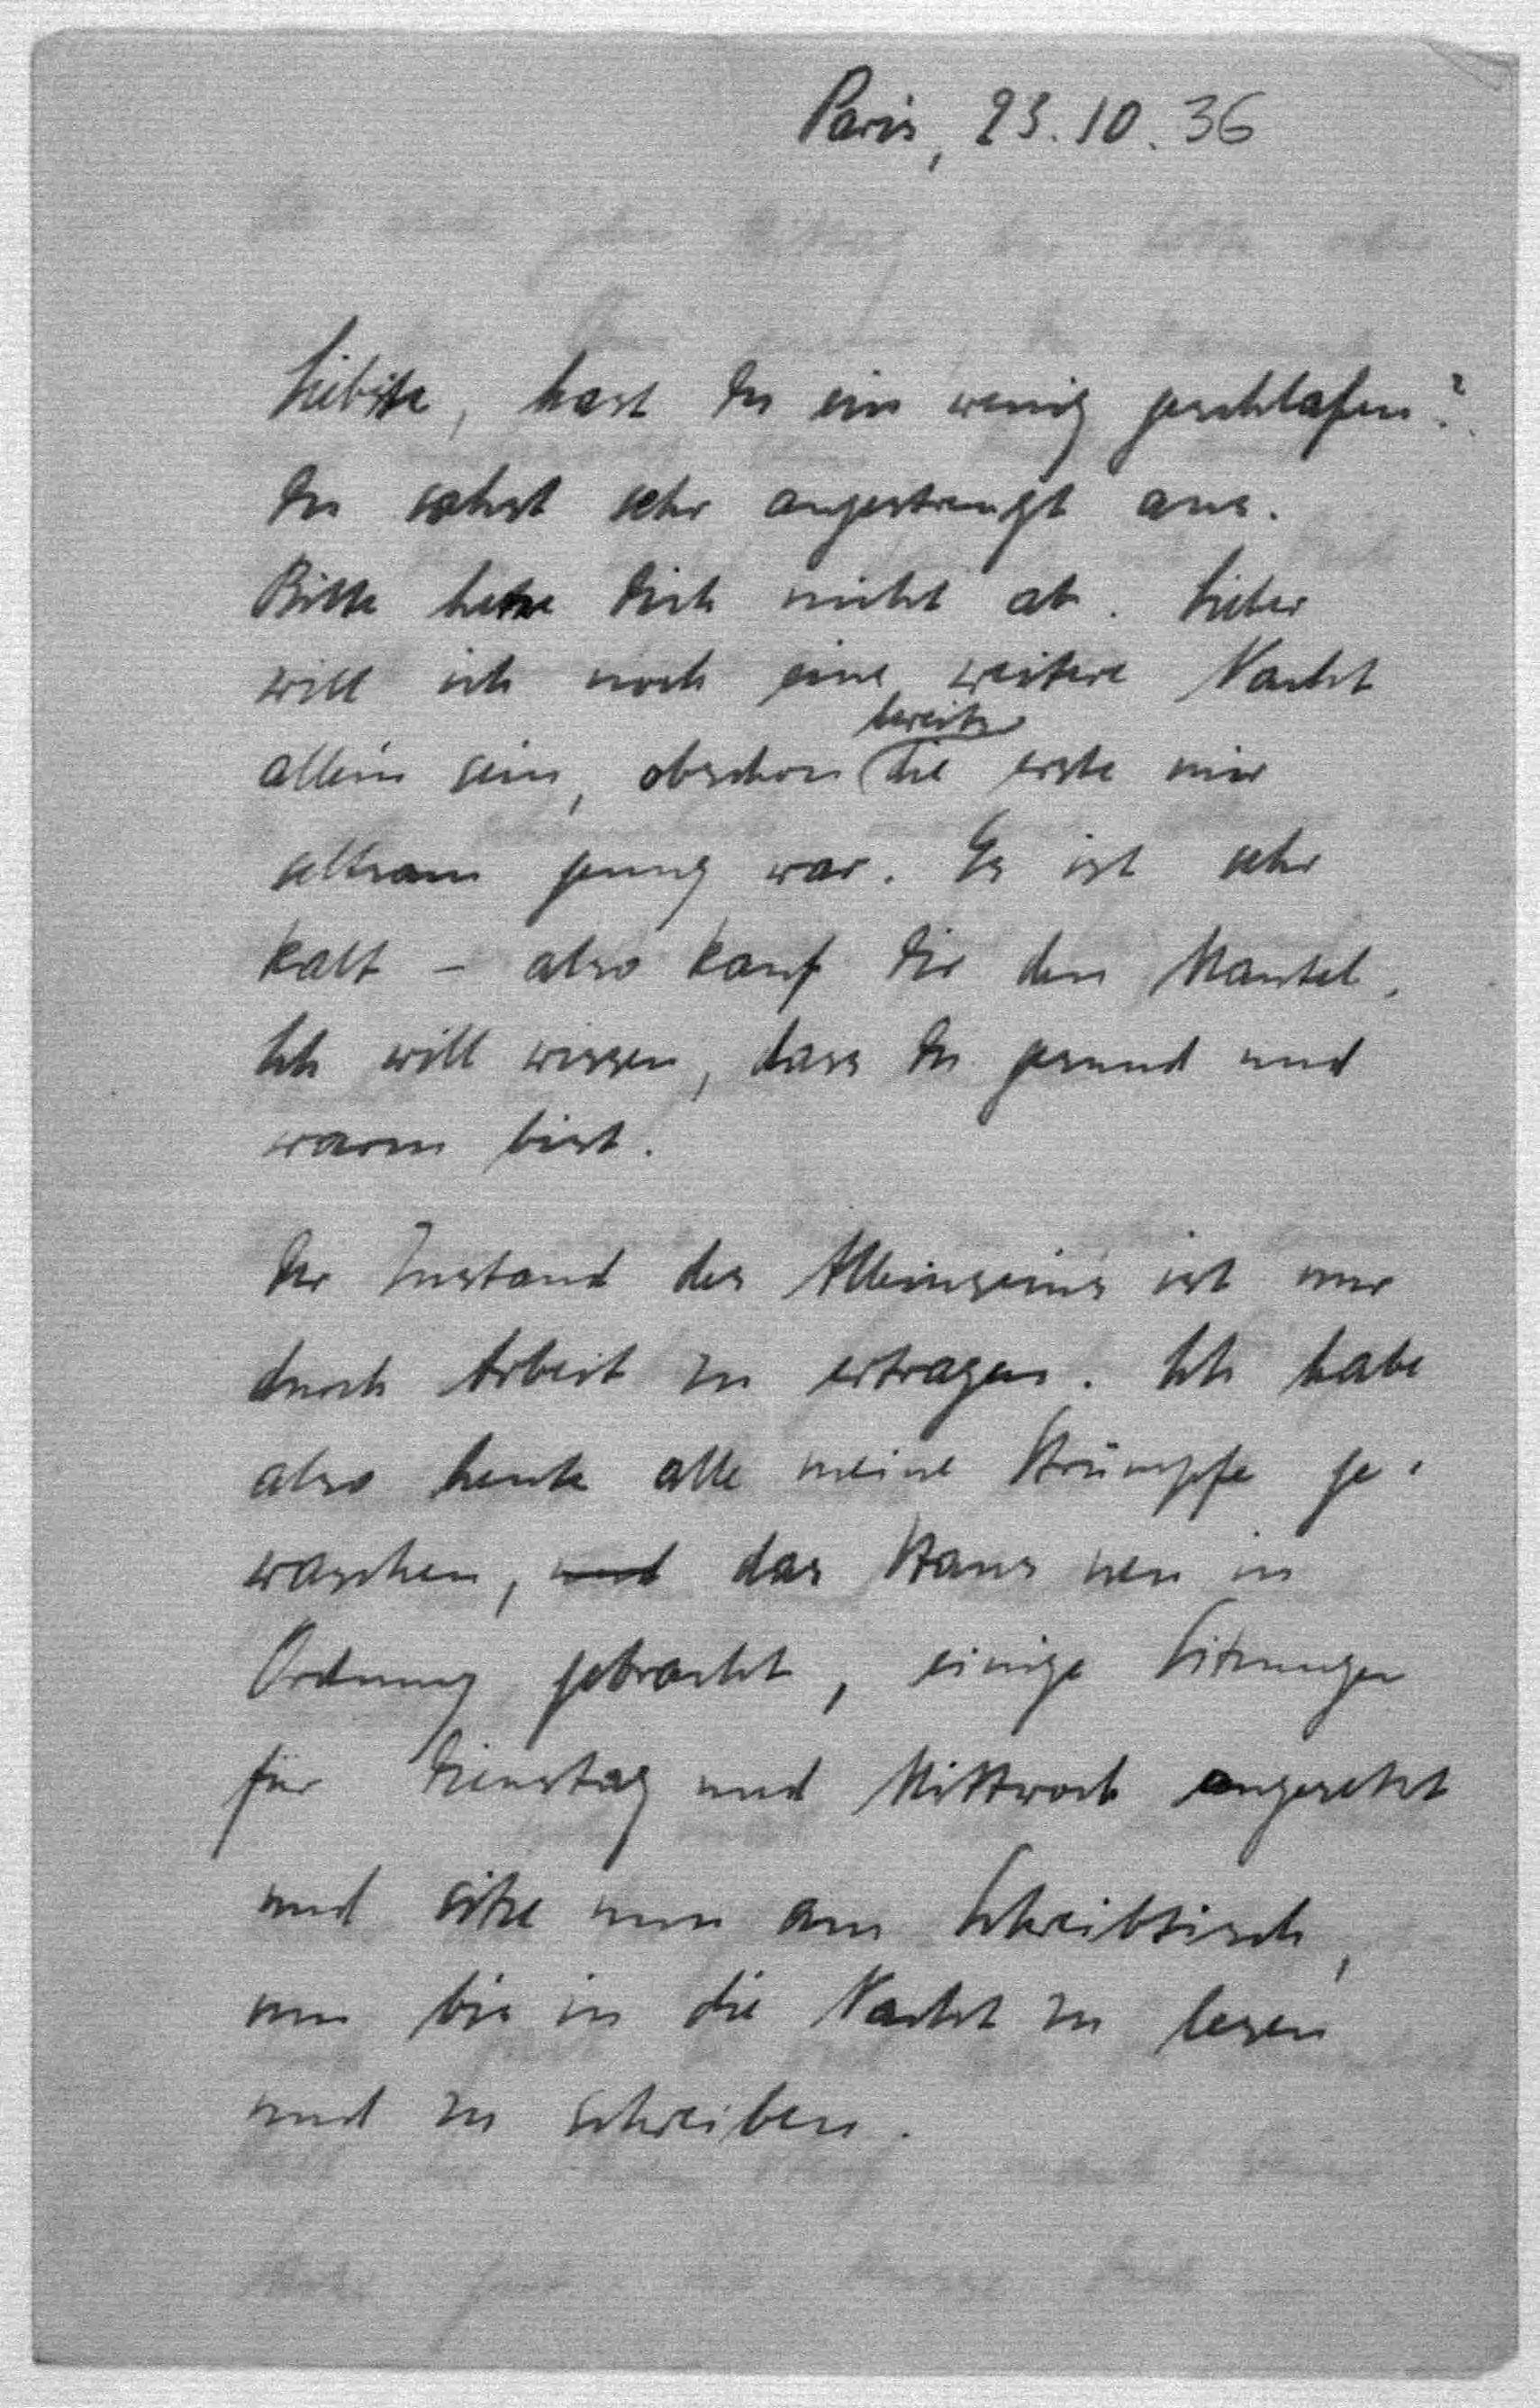 Paris, 23.10.36
Liebste, hast Du ein wenig geschlafen?
Du sahst sehr angestrengt aus.
Bitte hetze Dich nicht ab. Lieber
will ich noch eine weitere Nacht
bereits
allein sein, obschon die erste mir
seltsam genug war. Es ist sehr
kalt – also kauf Dir den Mantel.
Ich will wissen, dass Du gesund und
warm bist.
Der Zustand des Alleinseins ist nur
durch Arbeit zu ertragen. Ich habe
also heute alle meine Strümpfe ge-
waschen, und das Haus neu in
Ordnung gebracht, einige Sitzungen
für Dienstag und Mittwoch angesetzt
und sitze nun am Schreibtisch,
um bis in die Nacht zu lesen
und zu schreiben.